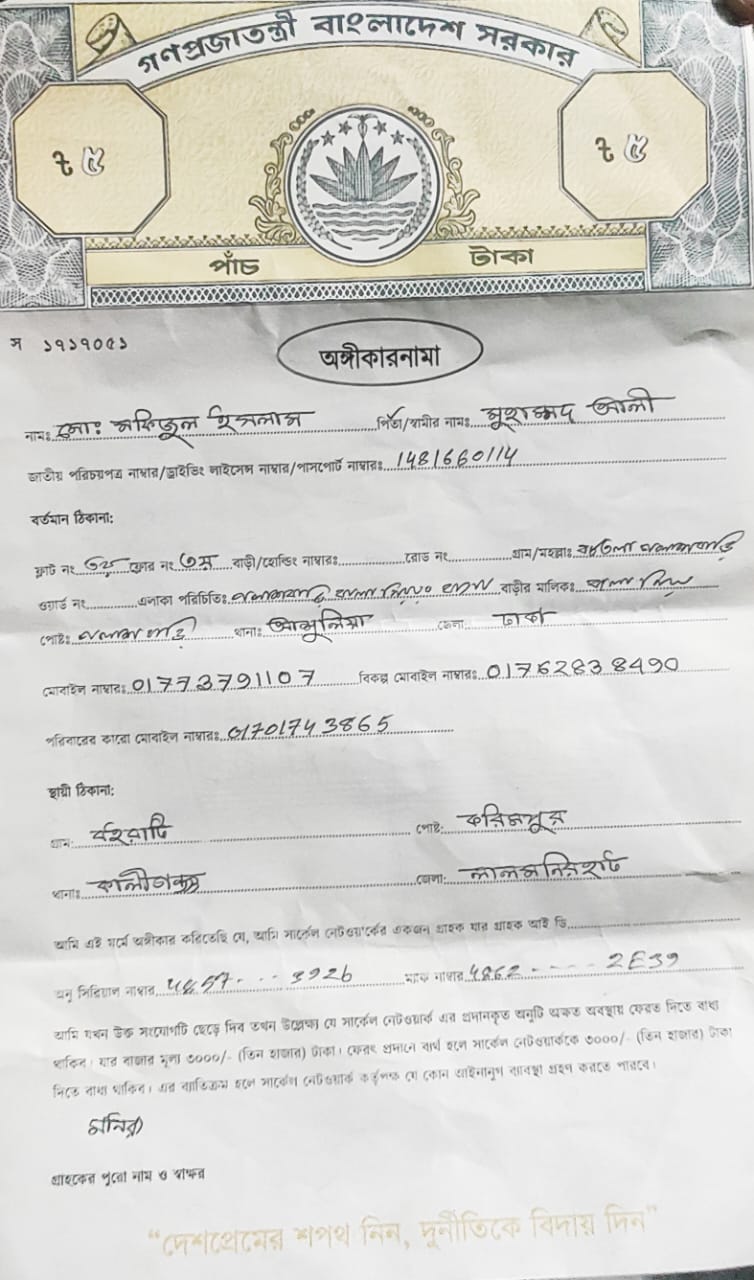 গণপ্রজাতন্ত্রী বাংলাদেশ সরকার
ট ৫ ট ৫
পাঁচ টাকা
স ১৭১৭০৫১
অঙ্গীকারনামা
নামঃ মোঃ মফিজুল ইসলাম পিতা/স্বামীর নামঃ মুহাম্মদ আলী
জাতীয় পরিচয়পত্র নাম্বার/ড্রাইভিং লাইসেন্স নাম্বার/পাসপোর্ট নাম্বারঃ 1481660114
বর্তমান ঠিকানা:
ফ্লাট নং ফ্লোর নং ৩য় বাড়ী/হোল্ডিং নাম্বারঃ রোড নং গ্রাম/মহল্লাঃ বটতলা
ওয়ার্ড নং এলাকা পরিচিতিঃ বাড়ীর মালিকঃ
পোষ্টঃ থানাঃ আশুলিয়া জেলা: ঢাকা
মোবাইল নাম্বারঃ 01773791107 বিকল্প মোবাইল নাম্বারঃ 01762838490
পরিবারের কারো মোবাইল নাম্বারঃ 01701743865
স্থায়ী ঠিকানা:
গ্রাম: পোষ্ট: করিমপুর
থানাঃ কালীগঞ্জ জেলা: লালমনিরহাট
আমি এই মর্মে অঙ্গীকার করিতেছি যে, আমি সার্কেল নেটওয়ার্কের একজন গ্রাহক যার গ্রাহক আই ডি
অনু সিরিয়াল নাম্বার 3926 ম্যাক নাম্বার 4862 2E39
আমি যখন উক্ত সংযোগটি ছেড়ে দিব তখন উল্লেক্ষ্য যে সার্কেল নেটওয়ার্ক এর প্রদানকৃত অনুটি অক্ষত অবস্থায় ফেরত দিতে বাধ্য
থাকিব। যার বাজার মূল্য ৩০০০/- (তিন হাজার) টাকা। ফেরৎ প্রদানে ব্যর্থ হলে সার্কেল নেটওয়ার্ককে ৩০০০/- (তিন হাজার) টাকা
দিতে বাধ্য থাকিব। এর ব্যতিক্রম হলে সার্কেল নেটওয়ার্ক কর্তৃপক্ষ যে কোন আইনানুগ ব্যবস্থা গ্রহণ করতে পারবে।
মনির
গ্রাহকের পুরো নাম ও স্বাক্ষর
“দেশপ্রেমের শপথ নিন, দুর্নীতিকে বিদায় দিন”